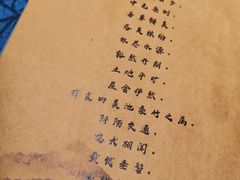 步，
中无杂树，
芳草鲜美，
落英缤纷，
林尽水源，
豁然开朗，
土地平旷，
屋舍俨然，
有良田美池桑竹之属，
阡陌交通，
鸡犬相闻，
黄发垂髫，